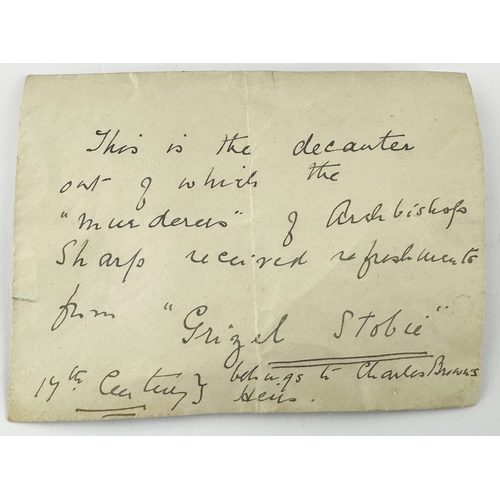 This is the decanter
out of which the
"murderers" of Archbishop
Sharp received refreshments
from "Grizel Stobie"
17th Century } belongs to Charles Browns
Heirs.